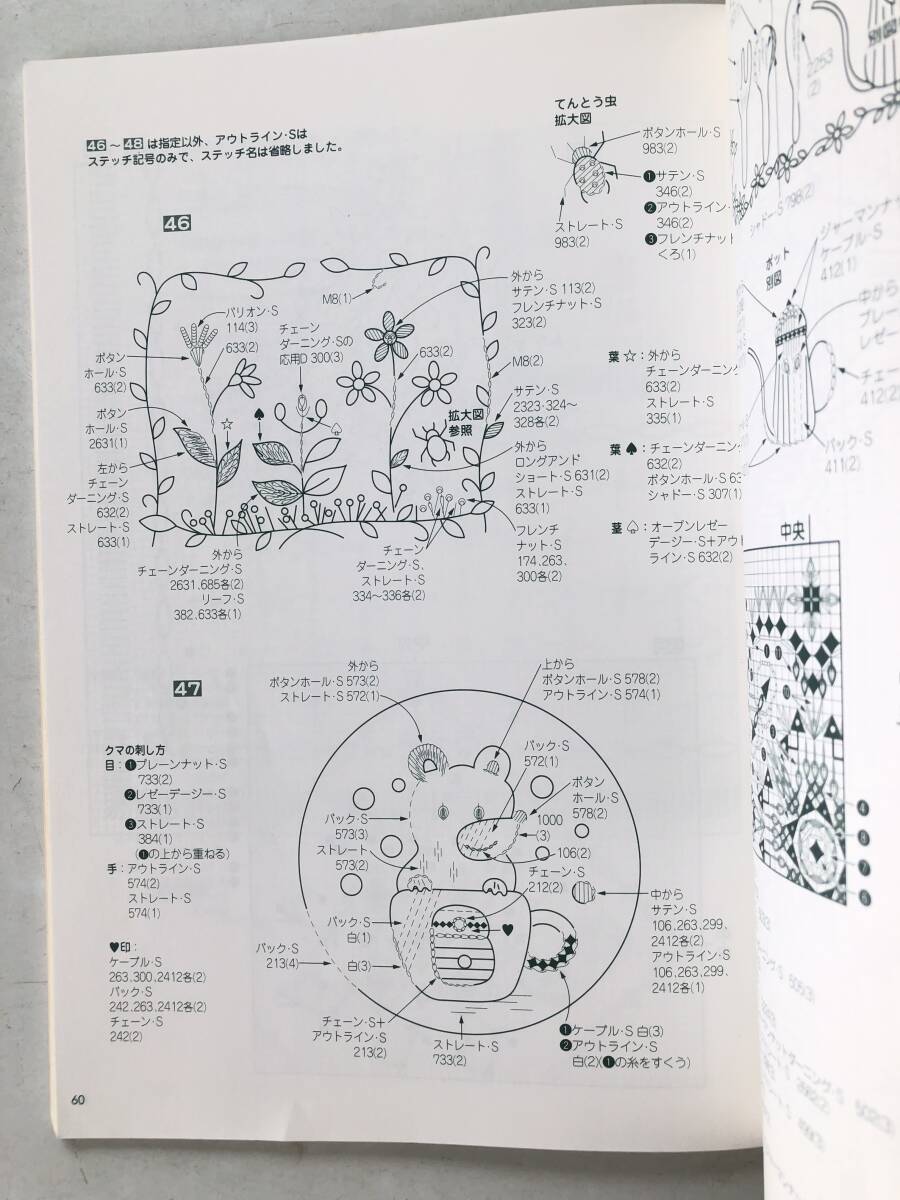 46～48は指定以外、アウトライン・Sは
ステッチ記号のみで、ステッチ名は省略しました。
てんとう虫
拡大図
ボタンホール・S
983(2)
❶サテン・S
346(2)
❷アウトライン・
346(2)
❸フレンチナット
くろ(1)
ストレート・S
983(2)
46
M8(1)
外から
サテン・S 113(2)
フレンチナット・S
323(2)
バリオン・S
114(3)
633(2)
チェーン
ダーニング・Sの
応用D 300(3)
633(2)
M8(2)
ボタン
ホール・S
633(2)
サテン・S
2323・324～
328各(2)
ボタン
ホール・S
2631(1)
☆
♠
♤
拡大図
参照
左から
チェーン
ダーニング・S
632(2)
ストレート・S
633(1)
外から
ロングアンド
ショート・S 631(2)
ストレート・S
633(1)
外から
チェーンダーニング・S
2631,685各(2)
リーフ・S
382,633各(1)
チェーン
ダーニング・S、
ストレート・S
334～336各(2)
フレンチ
ナット・S
174,263,
300各(2)
葉☆：外から
チェーンダーニング
633(2)
ストレート・S
335(1)
葉♠：チェーンダーニング
632(2)
ボタンホール・S 63
シャドー・S 307(1)
茎♤：オープンレゼー
デージー・S+アウト
ライン・S 632(2)
47
外から
ボタンホール・S 573(2)
ストレート・S 572(1)
上から
ボタンホール・S 578(2)
アウトライン・S 574(1)
クマの刺し方
目：❶プレーンナット・S
733(2)
❷レゼーデージー・S
733(1)
❸ストレート・S
384(1)
(❶の上から重ねる)
手：アウトライン・S
574(2)
ストレート・S
574(1)
♥印：
ケーブル・S
263,300,2412各(2)
バック・S
242,263,2412各(2)
チェーン・S
242(2)
バック・S
572(1)
ボタン
ホール・S
578(2)
1000
(3)
106(2)
バック・S
573(3)
ストレート
573(2)
チェーン・S
212(2)
♥
中から
サテン・S
106,263,299,
2412各(2)
アウトライン・S
106,263,299,
2412各(1)
バック・S
白(1)
白(3)
バック・S
213(4)
チェーン・S+
アウトライン・S
213(2)
ストレート・S
733(2)
❶ケーブル・S 白(3)
❷アウトライン・S
白(2)(❶の糸をすくう)
60
2253
(2)
シャドー・S 798(2)
ジャーマンナッ
ケーブル・S
412(1)
ポット
別図
中から
ブレー
レゼー
チェー
412(2)
バック・S
411(2)
中央